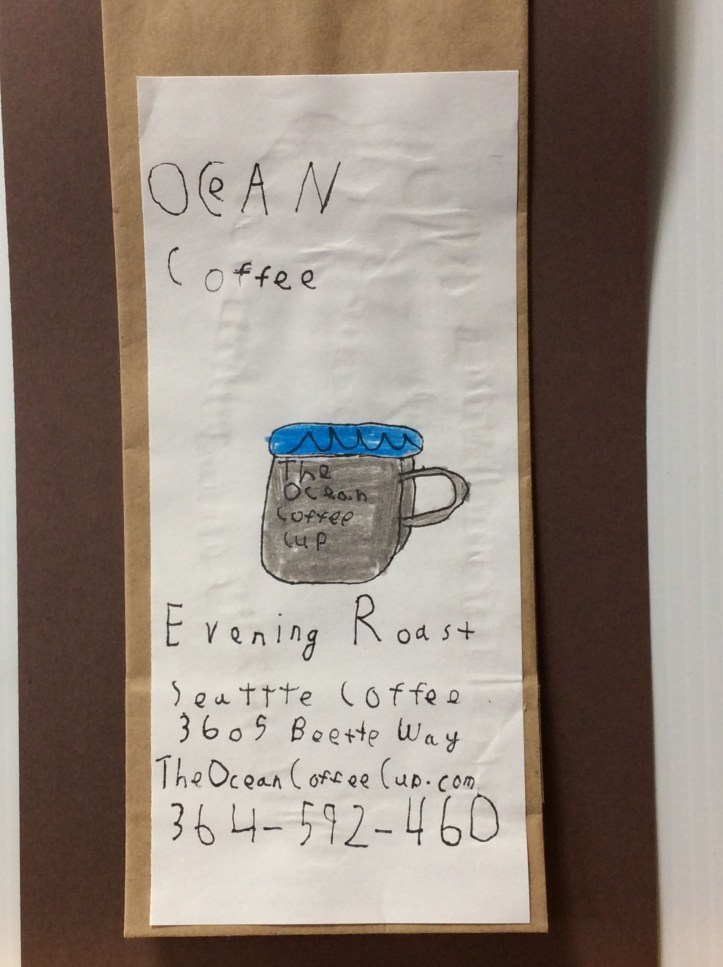 OCeAN
Coffee
The
Ocean
Coffee
Cup
Evening Roast
Seattte Coffee
3605 Beette Way
TheOceanCoffeeCup.com
364-592-460